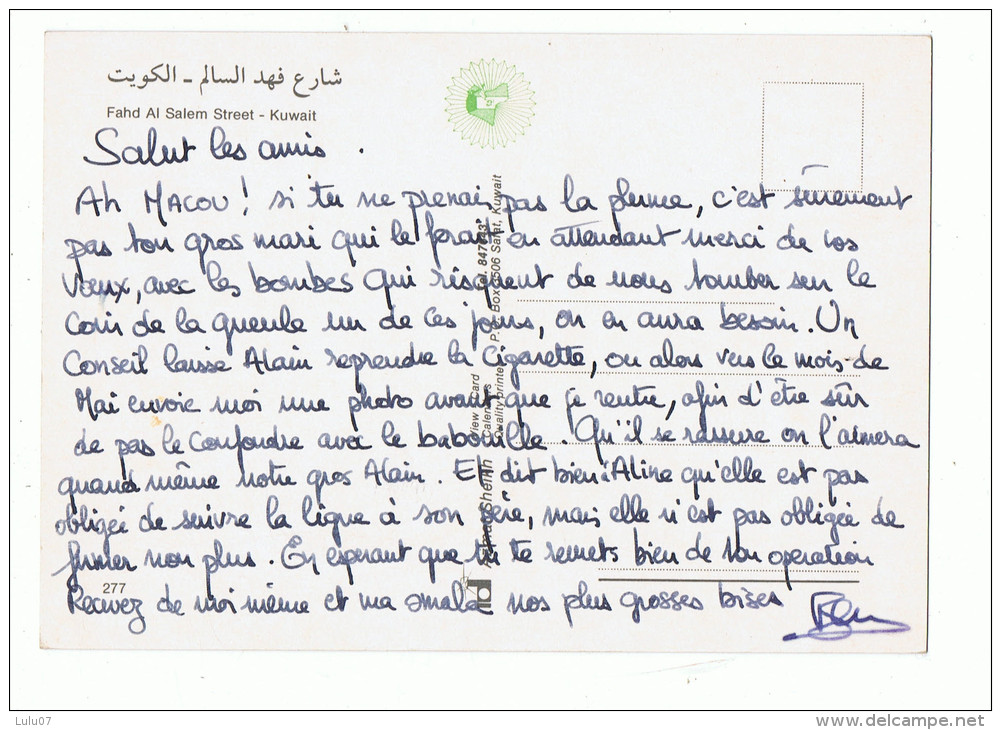 شارع فهد السالم - الكويت
Fahd Al Salem Street - Kuwait
Salut les amis .
Ah MACOU ! si tu ne prenais pas la plume, c'est sûrement
pas ton gros mari qui le ferait en attendant merci de vos
Voeux, avec les bombes qui risquent de nous tomber sur le
Coin de la gueule un de ces jours, on en aura besoin. Un
Conseil laisse Alain reprendre la Cigarette, ou alors vers le mois de
Mai envoie moi une photo avant que je rentre, afin d'être sûr
de pas le Confondre avec le babouille. Qu'il se rassure on l'aimera
quand même notre gros Alain. Et dit bien à Aline qu'elle est pas
obligée de suivre la ligne à son père, mais elle n'est pas obligée de
fumer non plus. En esperant que tu te remets bien de ton operation
Recevez de moi même et ma smala nos plus grosses bises
277
View Card
Calendars
Quality printe
Tel. 847643
P.O. Box 3506 Safat, Kuwait
Sheikh
Lulu07
www.delcampe.net